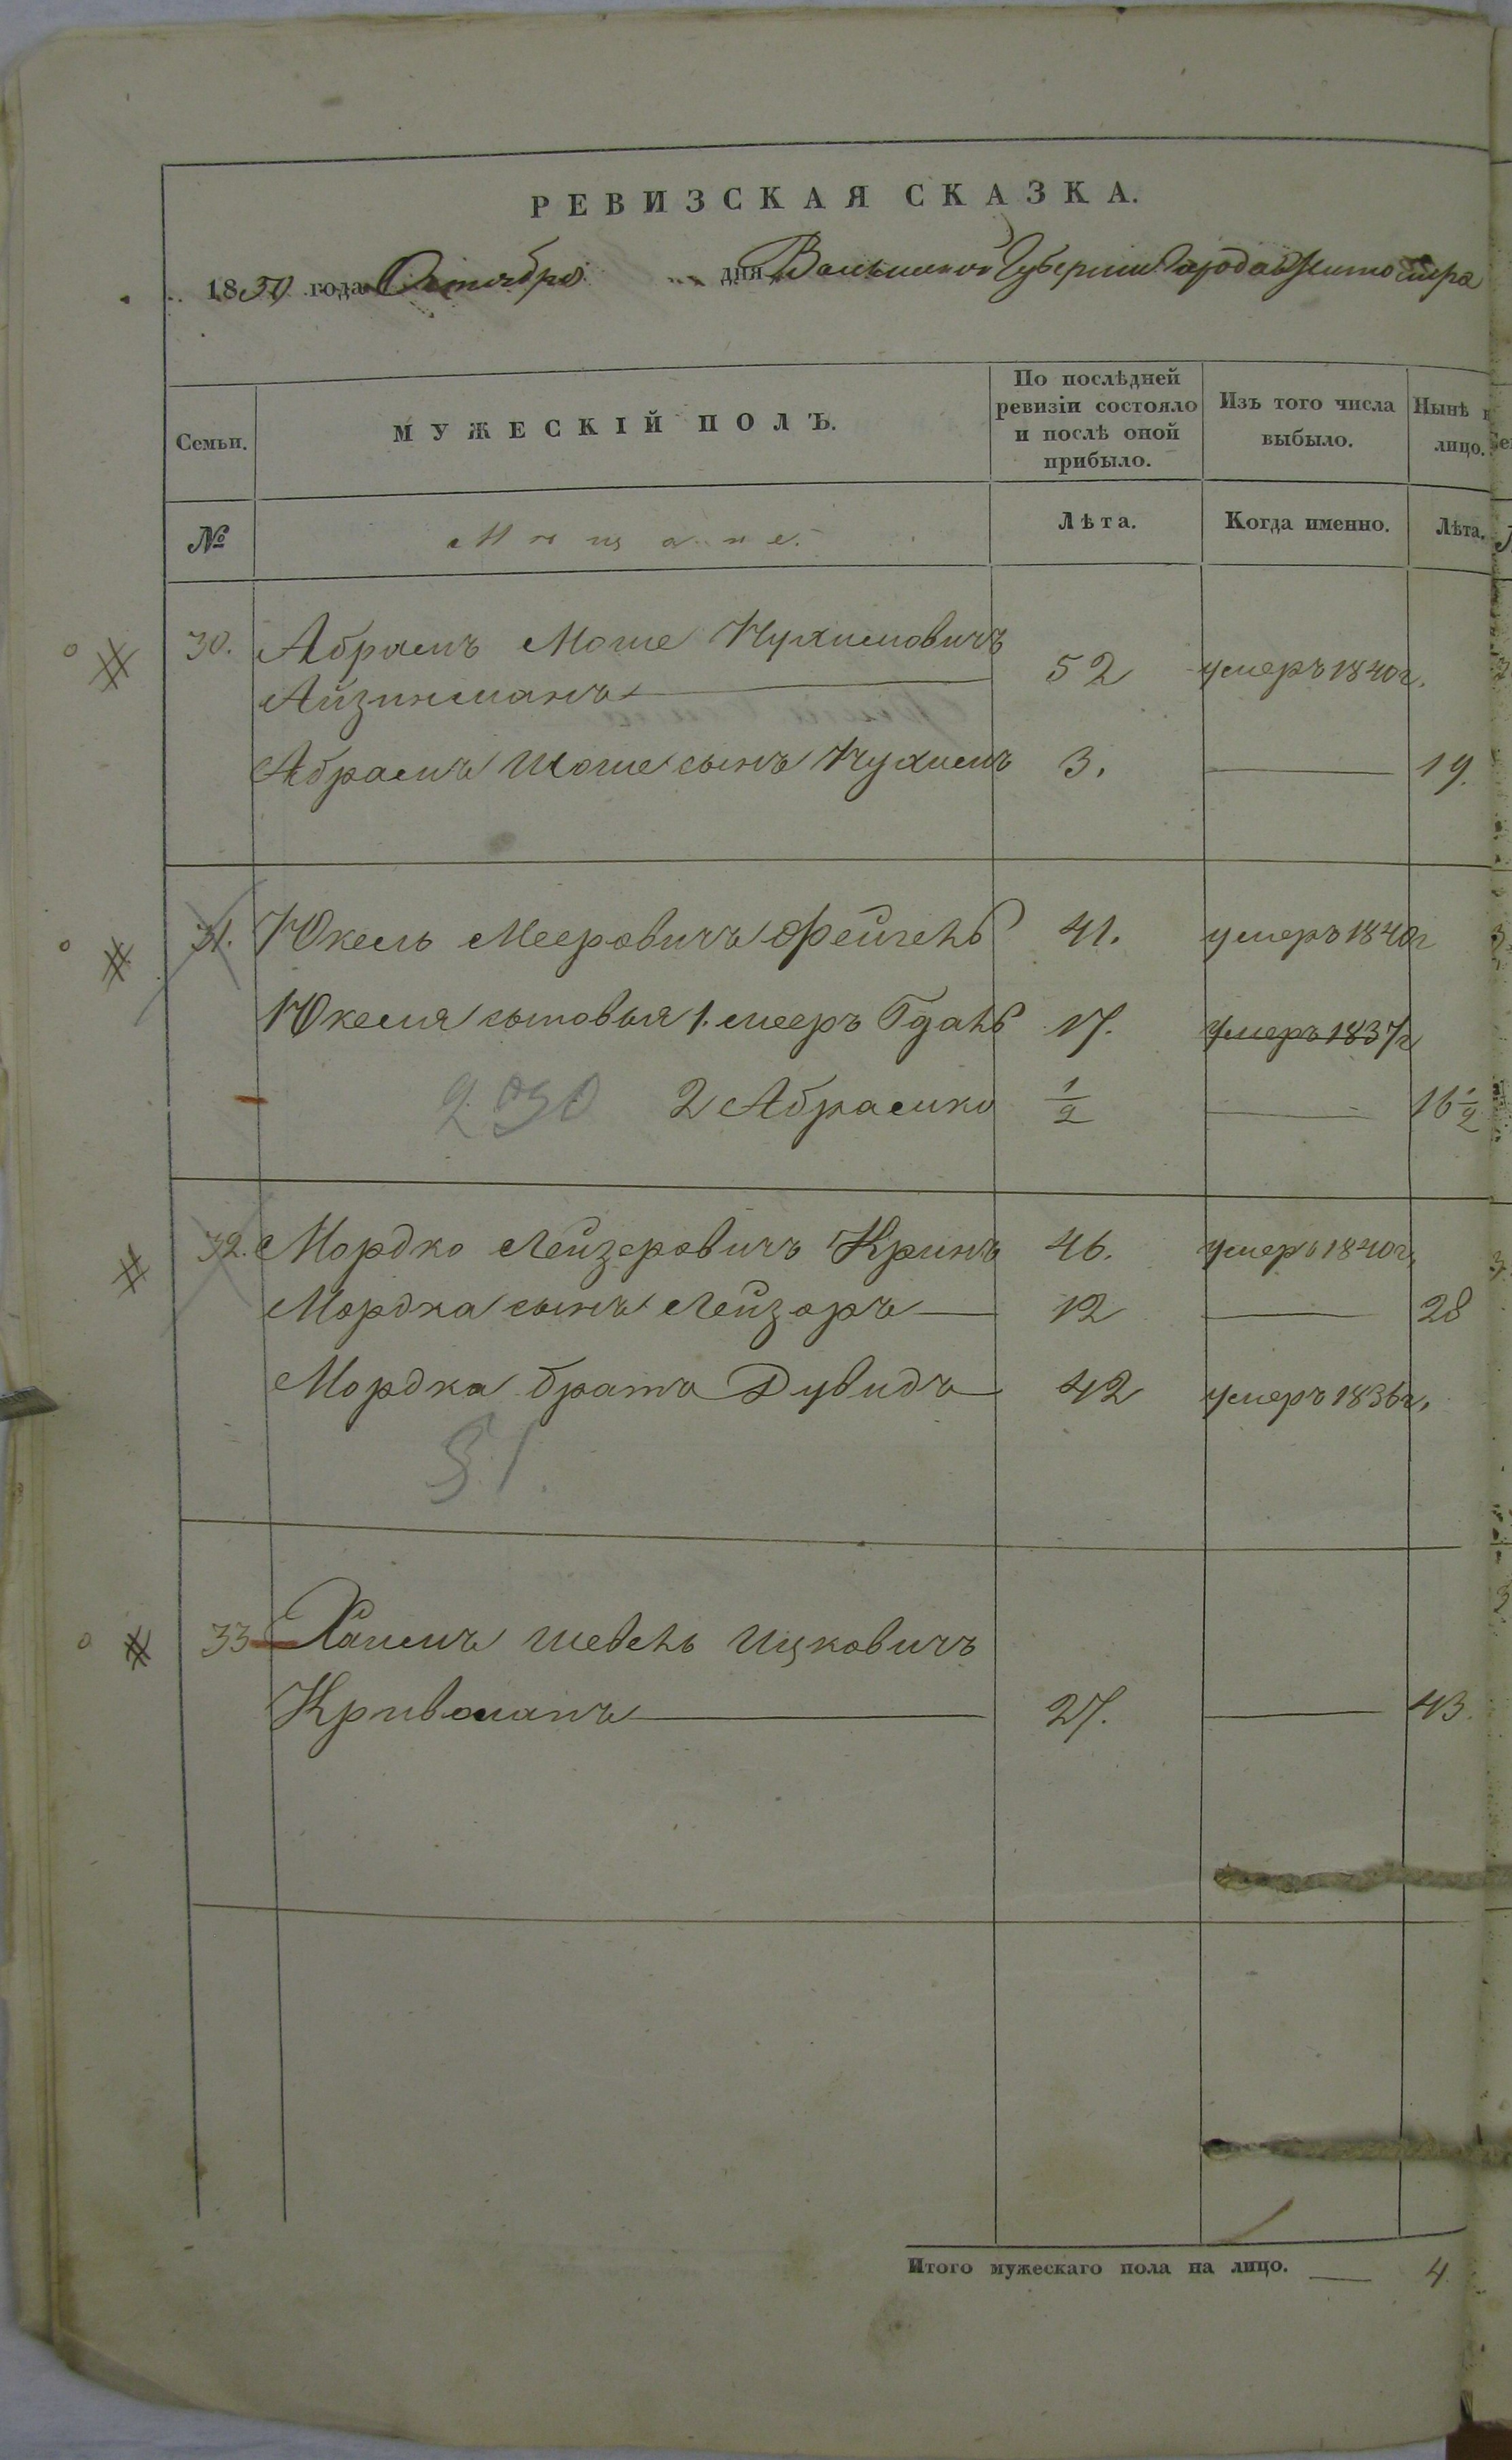 РЕВИЗСКАЯ СКАЗКА.
1850 года Октября дня Волынской Губернии Города Житомира
Семьи.
МУЖЕСКІЙ ПОЛЪ.
По послѣдней
ревизіи состояло
и послѣ оной
прибыло.
Изъ того числа
выбыло.
Нынѣ
лицо.
№
Мѣщане.
Лѣта.
Когда именно.
Лѣта.
30. Абрамъ Моше Нухимовичъ
Айзинманъ 52 умеръ 1840г.
Абрамъ Моше сынъ Нухимъ 3. 19.
31. Юкель Мееровичъ Фейгель 41. умеръ 1840г
Юкеля сыновья 1. Мееръ 17. умеръ 1837г
2 Абрамко 1/2 16 1/2
32. Мордко Лейзеровичъ Кринъ 46. умеръ 1840г.
Мордка сынъ Лейзоръ 12 28
Мордка братъ Дувидъ 42 умеръ 1836г.
51.
33 Хаимъ Шевель Ицковичъ
Кривошапъ 27. 43.
Итого мужескаго пола на лицо. 4